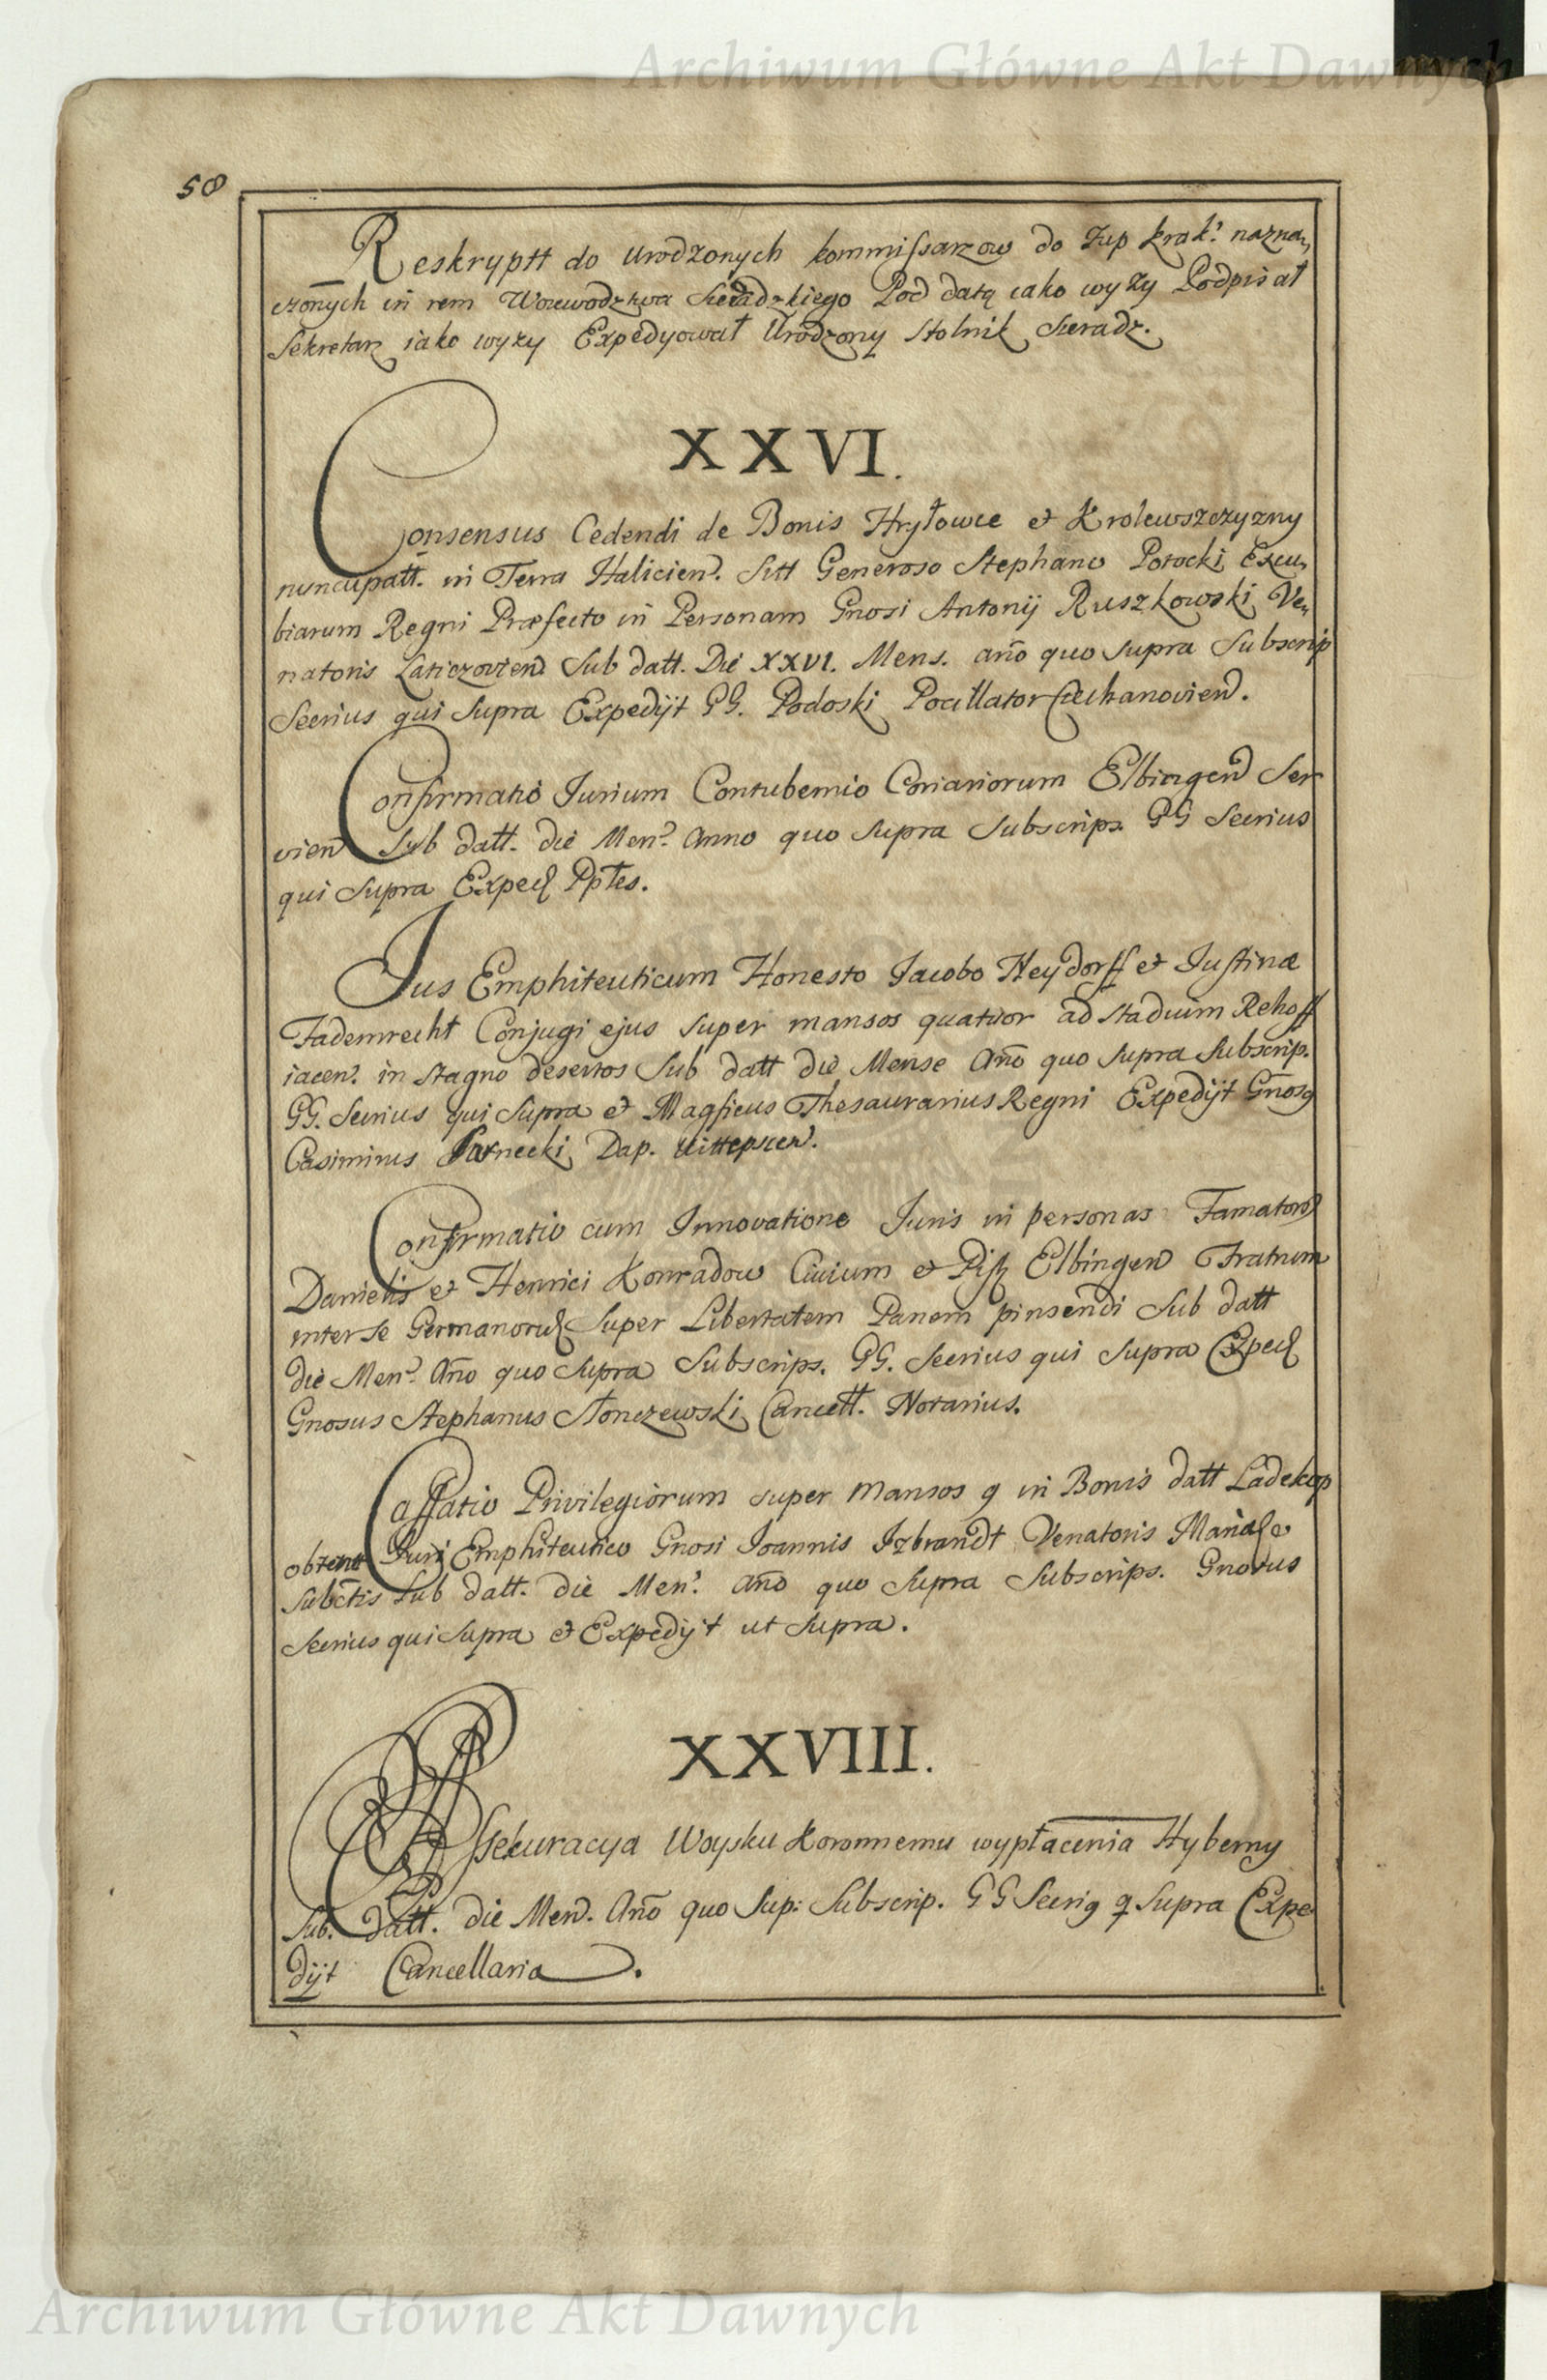 Archiwum Główne Akt Dawnych
58
Reskryptt do Urodzonych kommissarzow do Zup Krak: nazna,
czonych in rem Woiewodztwa Sieradzkiego Pod datą iako wyzy Podpisał
Sekretarz iako wyzy Expedyował Urodzony Stolnik Sieradz.
XXVI.
Consensus Cedendi de Bonis Hryłowce et Krolewszczyzny
nuncupatt. in Terra Halicien. Sitt Generoso Stephano Potocki Excu,
biarum Regni Præfecto in Personam Gnosi Antonij Ruszkowski Ve,
natoris Laticzovien. Sub datt. Die XXVI. Mens. año quo supra Subscrip
Secrius qui supra Expedijt GG. Podoski Pocillator Ciechanovien.
Confirmatio Jurium Contubernio Coriariorum Elbingen Ser
vien Sub datt. die Men. Anno quo supra Subscrips. GG Secrius
qui supra Exped Pptes.
Jus Emphiteuticum Honesto Jacobo Heydorff et Justinæ
Fademrecht Conjugi ejus super mansos quatuor ad staduim Rehoff
iacen. in stagno desertos Sub datt die Mense Año quo supra Subscrip.
GG. Secrius qui supra et Magficus Thesaurarius Regni Expedijt Gñosq
Casimirus Sarnecki Dap. Vittepscen.
Confirmatio cum Innovatione Juris in personas Famator
Danielis et Henrici Konradow Civium et Pist Elbingen Fratrum
inter se Germanoru Super Libertatem Panem pinsendi Sub datt
die Men. Año quo supra Subscrips. GG. Secrius qui supra Exped
Gnosus Stephanus Słonczewski Cancell. Notarius.
Cassatio Privilegiorum super Mansos q in Bonis datt Ladekop
obtent Juri Emphiteutico Gnosi Joannis Izbrandt Venatoris
Subctis Sub datt. die Men. año quo supra Subscrips. Gnosus
Secrius qui supra et Expedijt ut supra.
XXVIII.
Assekuracya Woysku Koronnemu wypłacenia Hyberny
Sub. datt. die Men. Año quo Sup: Subscrip. GG Secriq q supra Expe
dijt Cancellaria.
Archiwum Główne Akt Dawnych